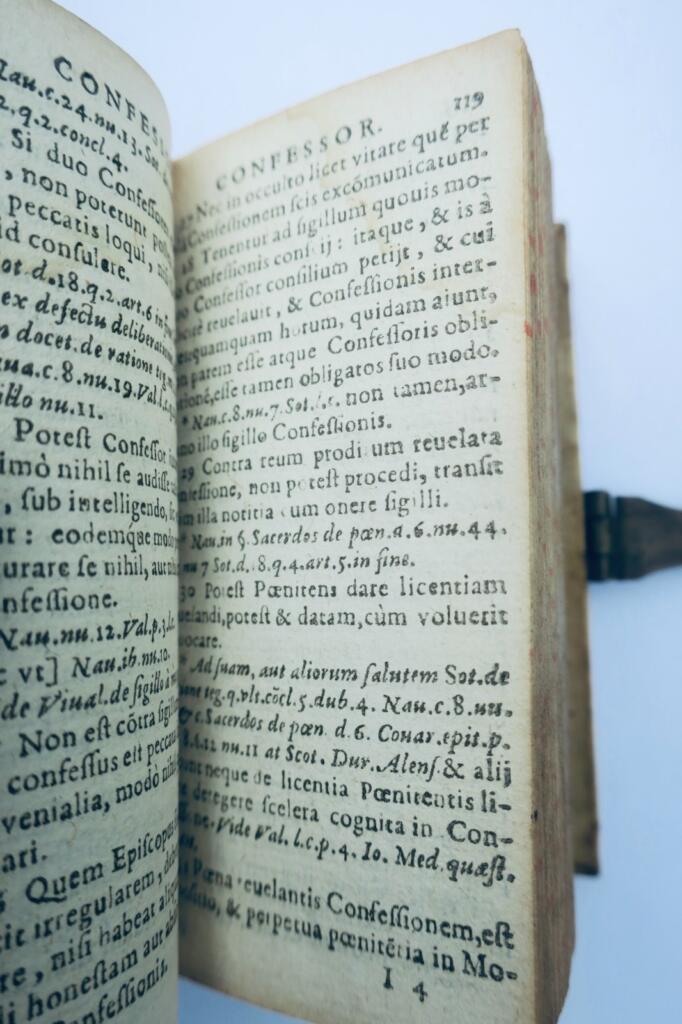 CONFES
Nau.c.24.nu.13.
2.q.2.concl.4.
Si duo Confess
, non poterunt
peccatis loqui,
id consulere.
ot.d.18.q.2.art.6
ex defectu delibera
docet.de ratione
ua.c.8.nu.19.Val.
illo nu.11.
Potest Confessor
imò nihil se audisse
, sub intelligendo,
ur: eodemque modo
urare se nihil,
nfessione.
Nau.nu.12.Val.p.3.
vt] Nau.ib.nu.10.
de Viual.de sigillo
Non est cōtra
confessus est
venialia, modò
ari.
Quem Episcop
cit irregularem,
re, nisi habeat
li honestam aut
onfessionis.
CONFESSOR. 119
Nec in occulto licet vitare quē per
Confessionem scis excōmunicatum.
Tenentur ad sigillum quouis mo-
Confessionis conscij: itaque, & is à
Confessor consilium petijt, & cui
reuelauit, & Confessionis inter-
quamquam horum, quidam aiunt,
parem esse atque Confessoris obli-
esse tamen obligatos suo modo.
* Nau.c.8.nu.7. Sot. non tamen, ar-
illo sigillo Confessionis.
29 Contra reum prodi um reuelata
fessione, non potest procedi, transit
illa notitia cum onere sigilli.
* Nau.in §. Sacerdos de pœn.d.6.nu.44.
nu 7 Sot.d. 8.q.4.art.5.in fine.
30 Potest Pœnitens dare licentiam
uelandi, potest & datam, cùm voluerit
uocare.
* Ad suam, aut aliorum salutem Sot.de
teg.q.vlt.cōcl.5.dub.4. Nau.c.8.nu.
c. Sacerdos de pœn d.6. Couar.epit.p.
nu.11 at Scot. Dur. Alens. & alij
neque de licentia Pœnitentis li-
detegere scelera cognita in Con-
Vide Val. l.c.p.4. Io. Med. quæst.
Pœna reuelantis Confessionem, est
& perpetua pœnitētia in Mo-
I 4